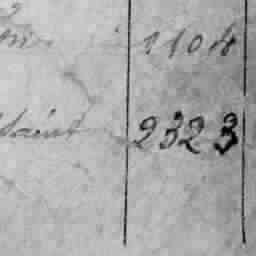 1104
Saint 2323